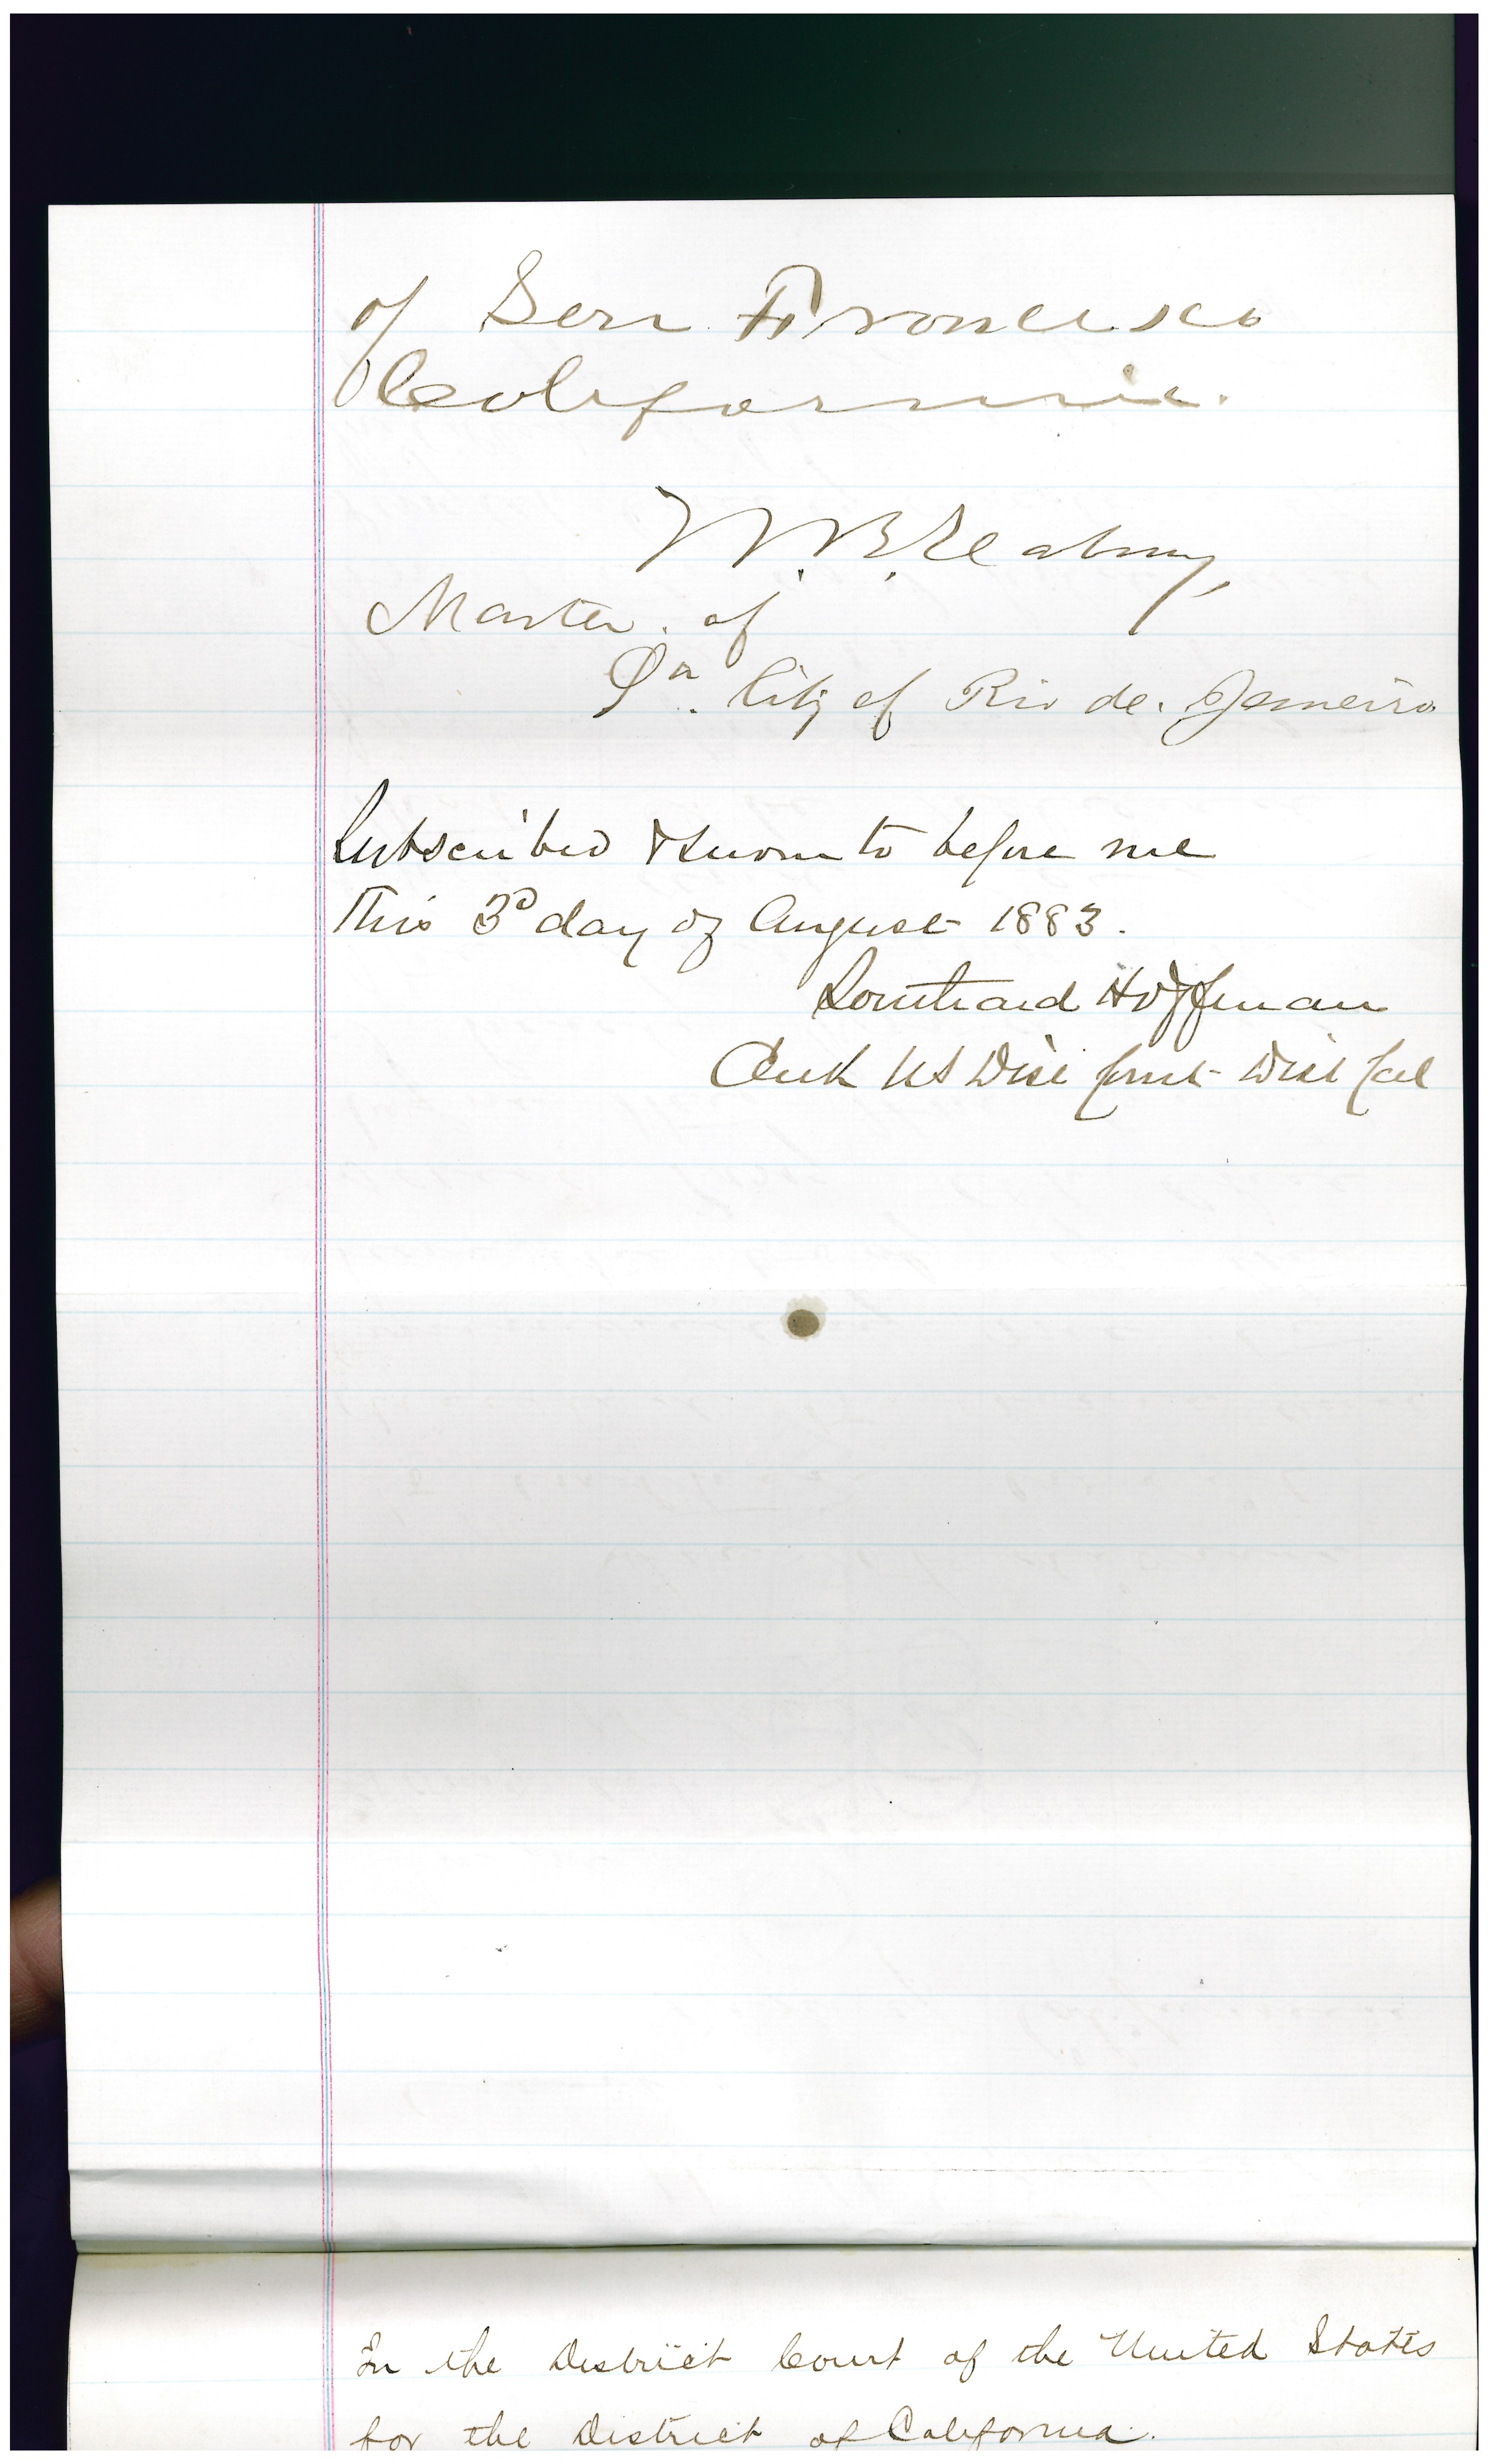 of San Francisco
California.
W. B. Seabury,
Master. of
Sr. City of Rio de. Janeiro
Subscribed & sworn to before me
This 3d day of August 1883.
Southard Hoffman
Clerk US Dist Court Dist Cal
In the District Court of the United States
for the District of California.